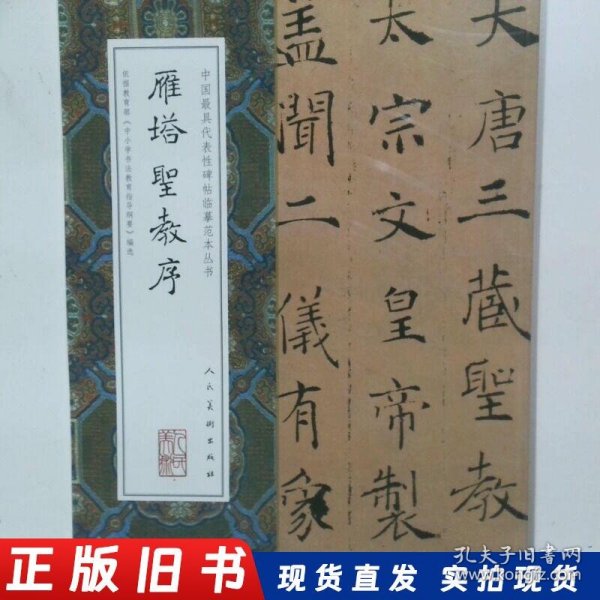 大唐三藏聖教
太宗文皇帝製
蓋聞二儀有象
中国最具代表性碑帖临摹范本丛书
雁塔聖教序
依据教育部《中小学书法教育指导纲要》编选
人民美術出版社
人民美术
孔夫子旧书网
www.kongfz.com
正版旧书
现货直发 实拍现货